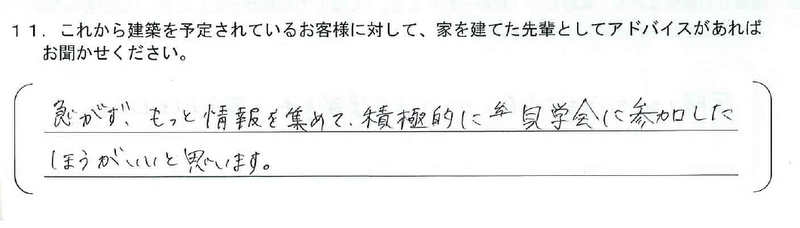 11. これから建築を予定されているお客様に対して、家を建てた先輩としてアドバイスがあれば
お聞かせください。
急がず、もっと情報を集めて、積極的に見学会に参加した
ほうがいいと思います。